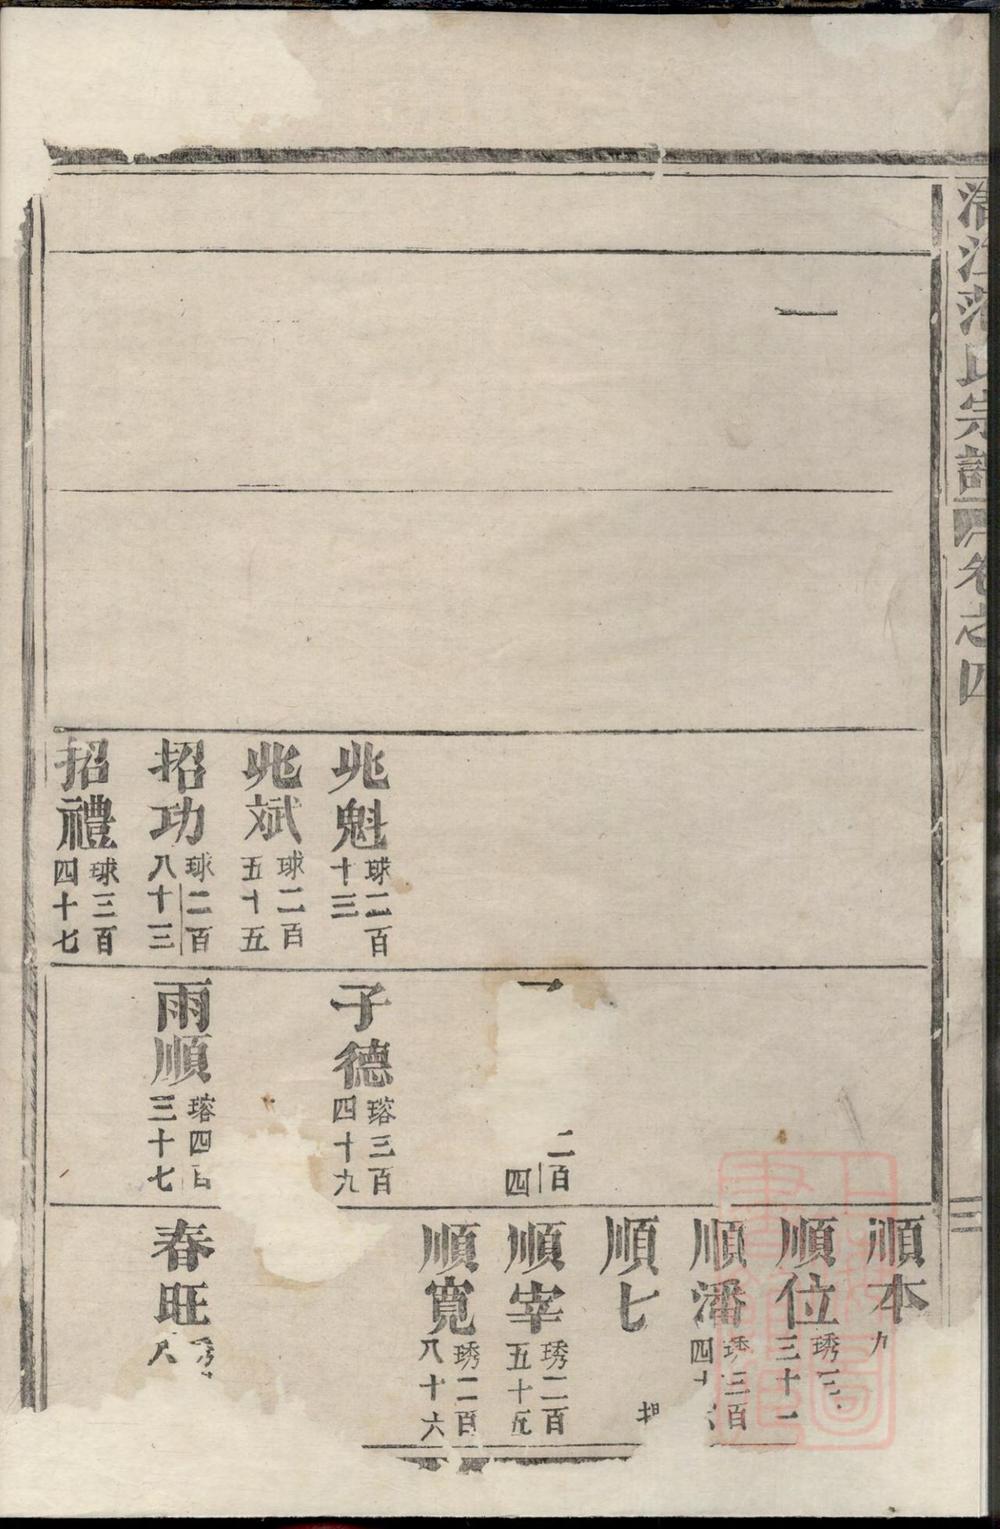 清江范氏宗譜
卷之四
二
一
兆魁
球二百
十三
兆斌
球二百
五十五
招功
球二百
八十三
招禮
球三百
四十七
一
二百
四
子德
瑢三百
四十九
雨順
瑢四百
三十七
順本
九
順位
琇三
三十一
順潘
琇三百
四十
順七
順宰
琇二百
五十五
順寬
琇二百
八十六
春旺
琇
八